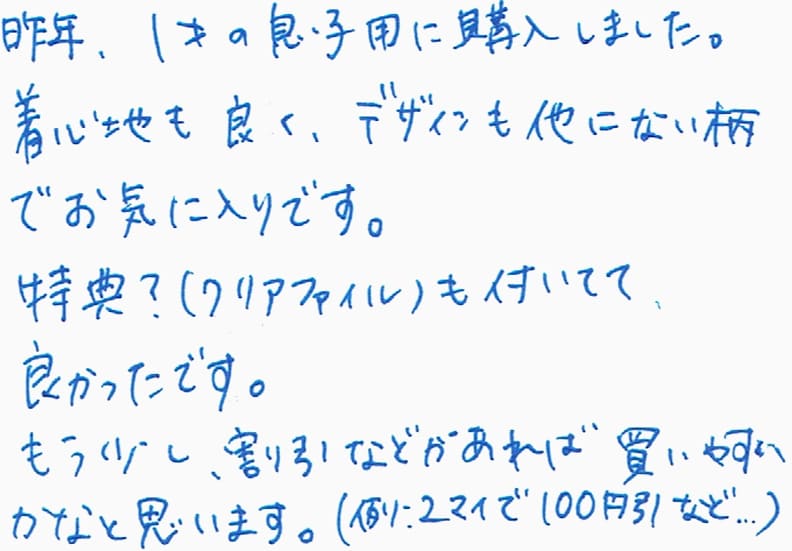 昨年、1才の息子用に購入しました。
着心地も良く、デザインも他にない柄
でお気に入りです。
特典？(クリアファイル)も付いてて、
良かったです。
もう少し、割り引などがあれば買いやすい
かなと思います。(例:2マイで100円引など…)